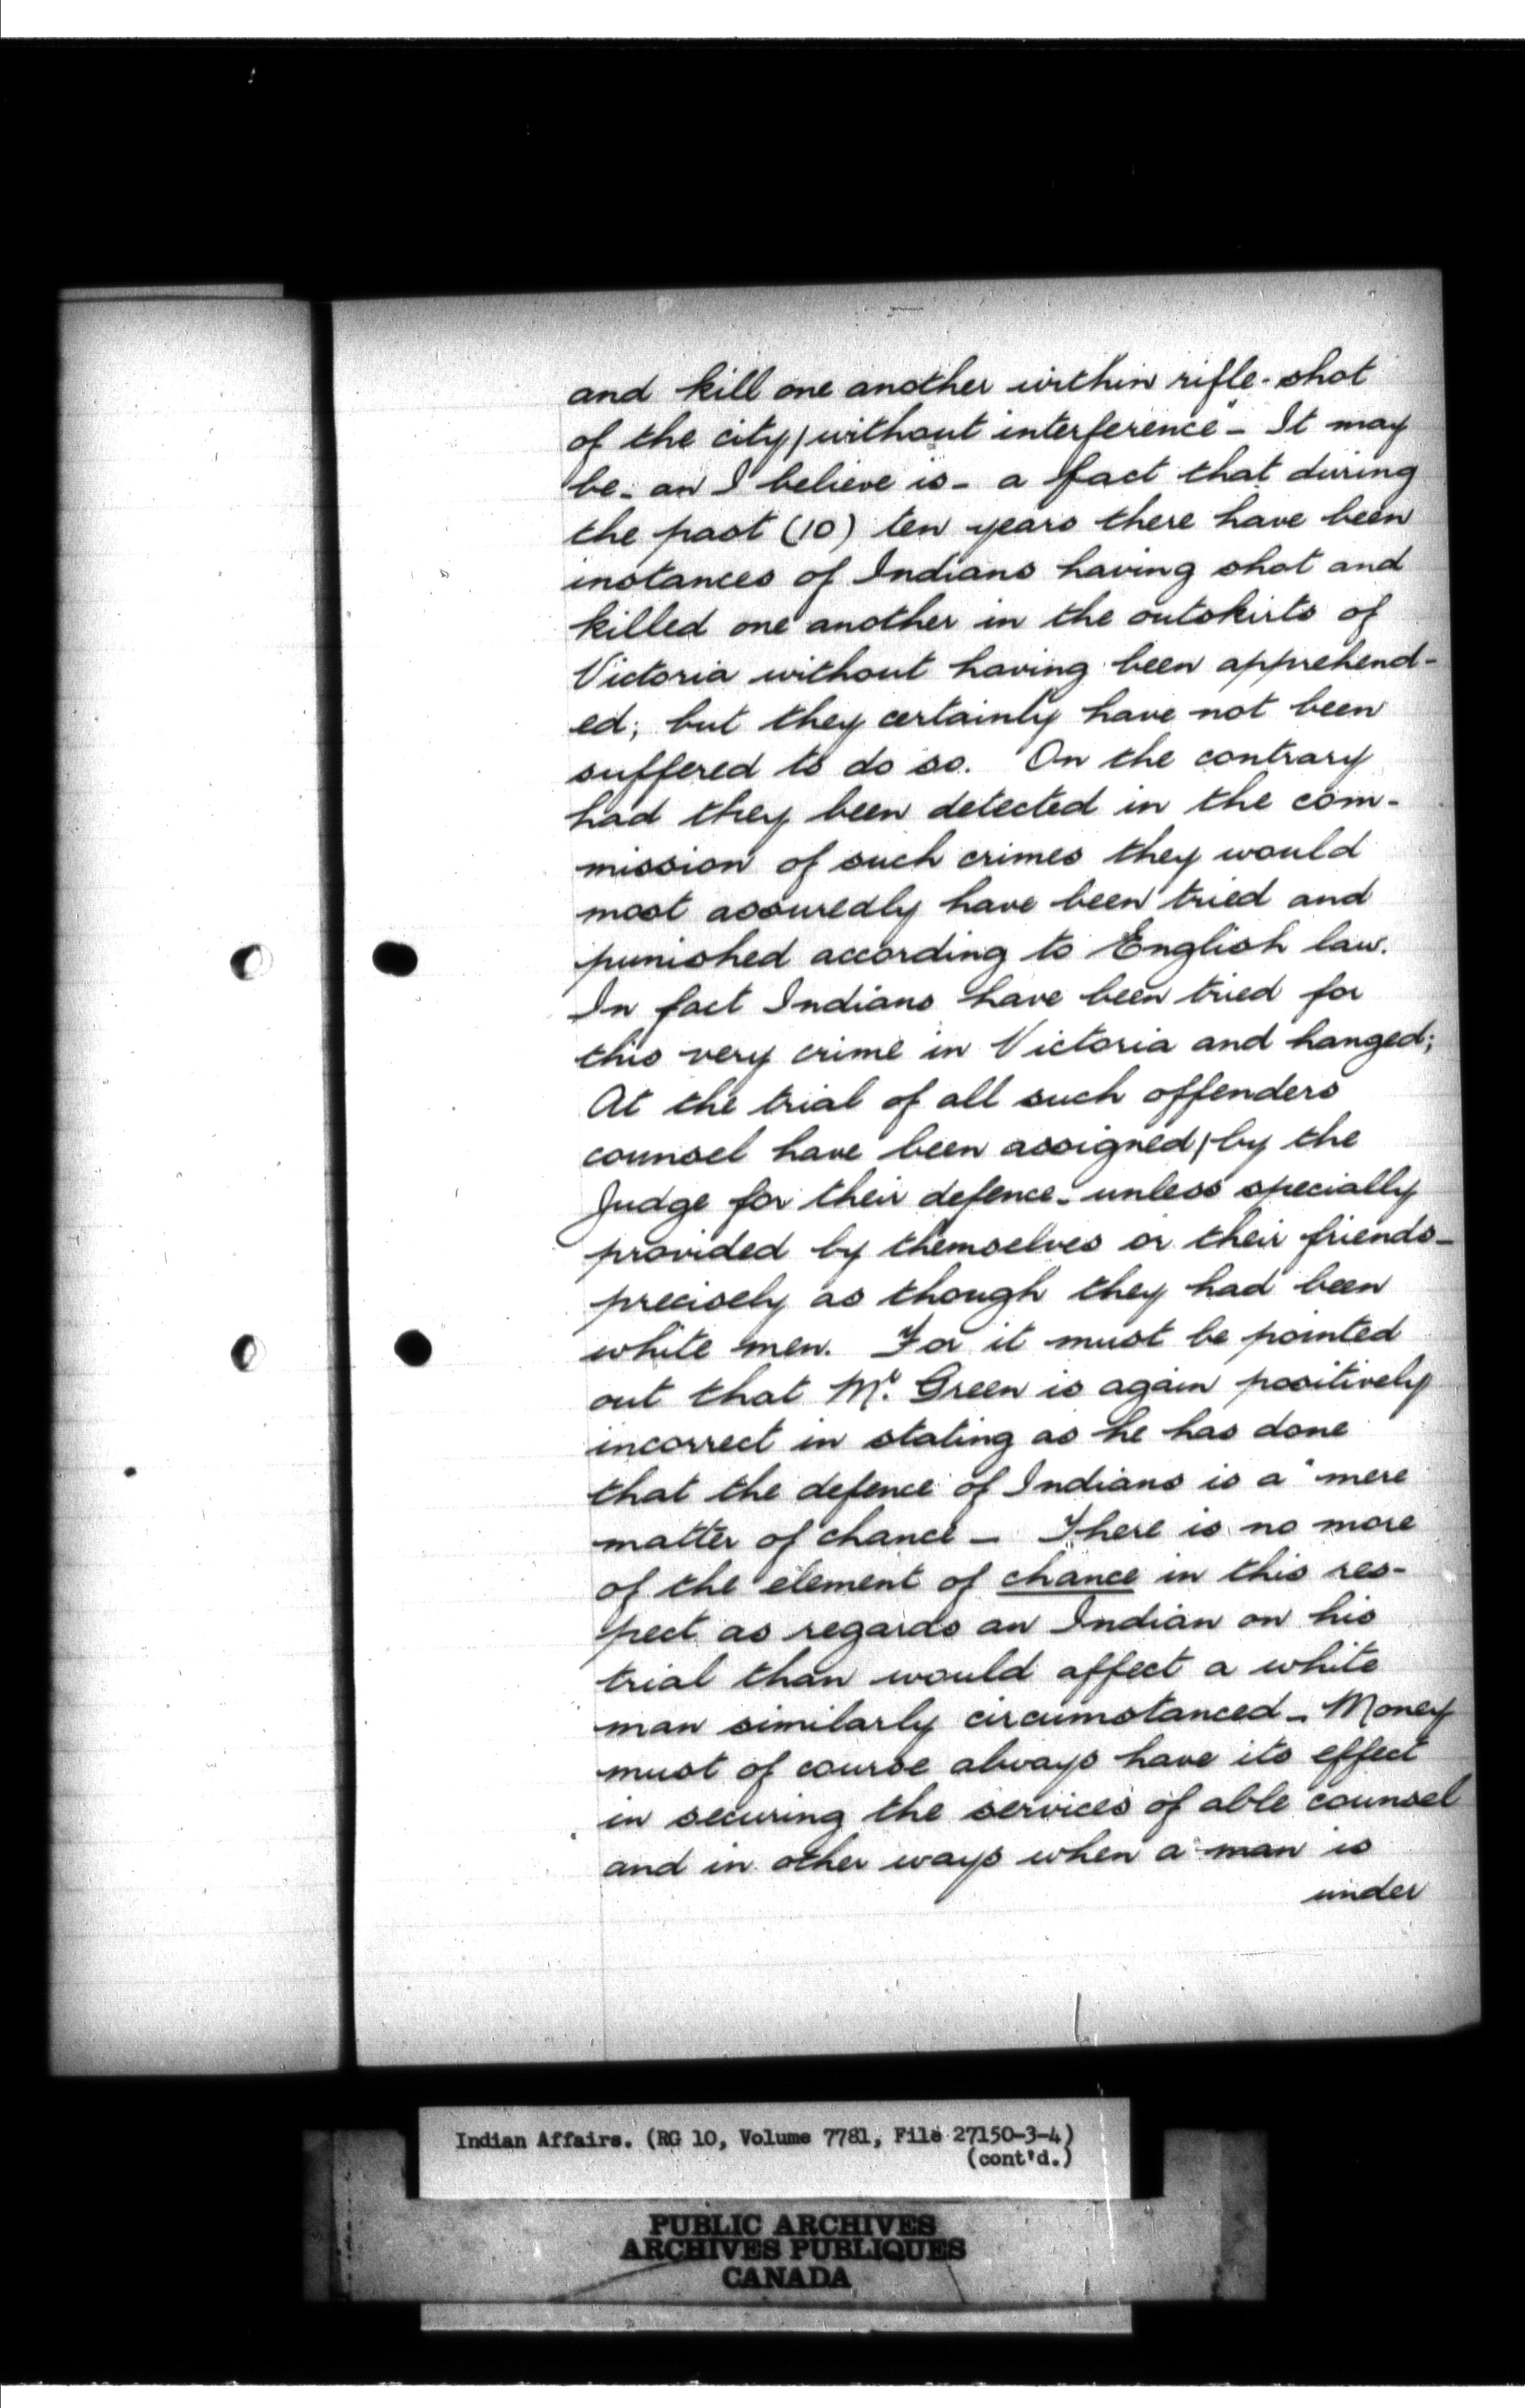 and kill one another within rifle-shot
of the city, without interference" - It may
be - an I believe is - a fact that during
the past (10) ten years there have been
instances of Indians having shot and
killed one another in the outskirts of
Victoria without having been apprehend-
ed; but they certainly have not been
suffered to do so. On the contrary
had they been detected in the com-
mission of such crimes they would
most assuredly have been tried and
punished according to English law.
In fact Indians have been tried for
this very crime in Victoria and hanged;
At the trial of all such offenders
counsel have been assigned, by the
Judge for their defence - unless specially
provided by themselves or their friends -
precisely as though they had been
white men. For it must be pointed
out that Mr. Green is again positively
incorrect in stating as he has done
that the defence of Indians is a "mere
matter of chance - There is no more
of the element of chance in this res-
pect as regards an Indian on his
trial than would affect a white
man similarly circumstanced - Money
must of course always have its effect
in securing the services of able counsel
and in other ways when a man is
under
Indian Affairs. (RG 10, Volume 7781, File 27150-3-4)
(cont'd.)
PUBLIC ARCHIVES
ARCHIVES PUBLIQUES
CANADA